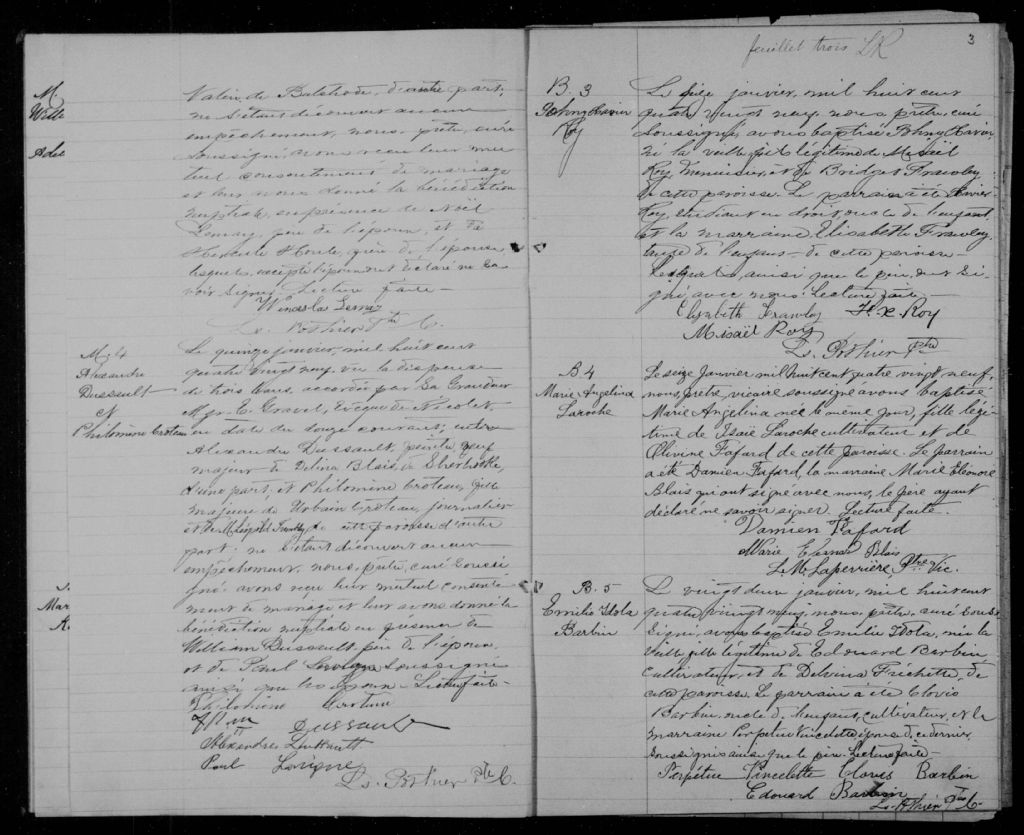 M
Adel
Valin, de Bulstrode, d'autre part;
ne s'étant découvert aucun
empêchement, nous, prêtre, curé
soussigné, avons reçu leur mu
tuel consentement de mariage
et leur avons donné la bénédiction
nuptiale, en présence de Noël
Lemay, père de l'époux, et de
Houle, père de l'épouse
lesquels, excepté l'époux ont déclaré ne sa
voir signer. Lecture faite —
Ls. Pothier Ptre C.
M. 4
Alexandre
Dussault
&
Philomène Croteau
Le quinze janvier, mil huit cent
quatre vingt neuf, vu la dispense
de trois bans accordée par Sa Grandeur
Mgr. E. Gravel, Evêque de Nicolet,
en date du douze courant; entre
Alexandre Dussault, veuf
majeur de Delvina Blais, de Sherbrooke,
d'une part, et Philomène Croteau, fille
majeure de Urbain Croteau, journalier
et de de cette paroisse d'autre
part; ne s'étant découvert aucun
empêchement, nous, prêtre, curé soussi
gné avons reçu leur mutuel consente
ment de mariage et leur avons donné la
bénédiction nuptiale en présence de
William Dussault père de l'époux
et de Paul Lavigne soussigné
ainsi que les époux — Lecture faite —
Philomène Croteau
Wm Dussault
Alexandre Dussault
Paul Lavigne
Ls. Pothier Ptre C.
Mar
A.
feuillet trois LR
3
B. 3
Roy
Le janvier, mil huit cent
quatre vingt neuf, nous prêtre, curé
soussigné, avons baptisé
né la veille, fils légitime de Misaël
Roy, menuisier, et de Bridget Frawley
de cette paroisse. Le parrain a été Xavier
Roy, étudiant en droit, oncle de l'enfant,
et la marraine Elisabeth Frawley,
tante de l'enfant — de cette paroisse —
Lesquels, ainsi que le père, ont si
gné avec nous. Lecture faite —
Elizabeth Frawley H. X. Roy
Misaël Roy
Ls. Pothier Ptre
B. 4
Marie Angelina
Laroche
Le seize Janvier mil huit cent quatre vingt neuf,
nous, prêtre, vicaire soussigné avons baptisé
Marie Angelina née le même jour, fille légi
time de Isaïe Laroche cultivateur et de
Olivine Fafard de cette paroisse. Le parrain
a été Damien Fafard, la marraine Marie Eléonore
Blais qui ont signé avec nous, le père ayant
déclaré ne savoir signer. Lecture faite.
Damien Fafard
Marie Blais
L. M. Laperrière, Ptre Vic.
B. 5
Emilie Idola
Barbin
Le vingt deux janvier, mil huit cent
quatre vingt neuf, nous, prêtre, curé sous
signé, avons baptisé Emilie Idola, née la
veille fille légitime de Edouard Barbin
cultivateur, et de Delvina Fréchette, de
cette paroisse. Le parrain a été Clovis
Barbin, oncle de l'enfant, cultivateur, et la
marraine Perpétue Vincelette épouse de ce dernier,
soussignés ainsi que le père. Lecture faite —
Perpétue Vincelette Clovis Barbin
Edouard Barbin
Ls. Pothier Ptre C.